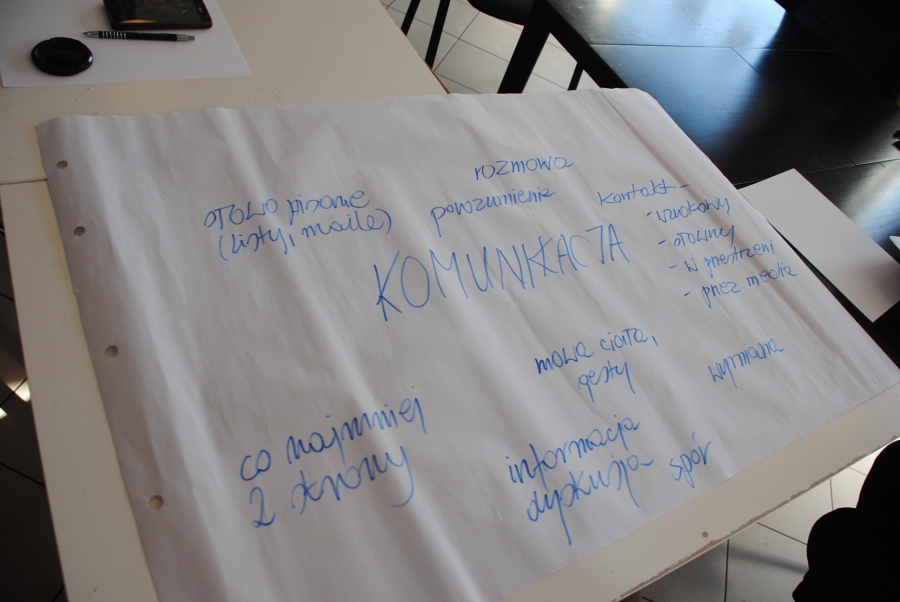 rozmowa
porozumienie
słowo pisane
(listy, maile)
kontakt -
- wzrokowy
- słowny
- w przestrzeni
- przez media
KOMUNIKACJA
mowa ciała,
gesty
wymiana
co najmniej
2 strony
informacja
dyskusja
spór